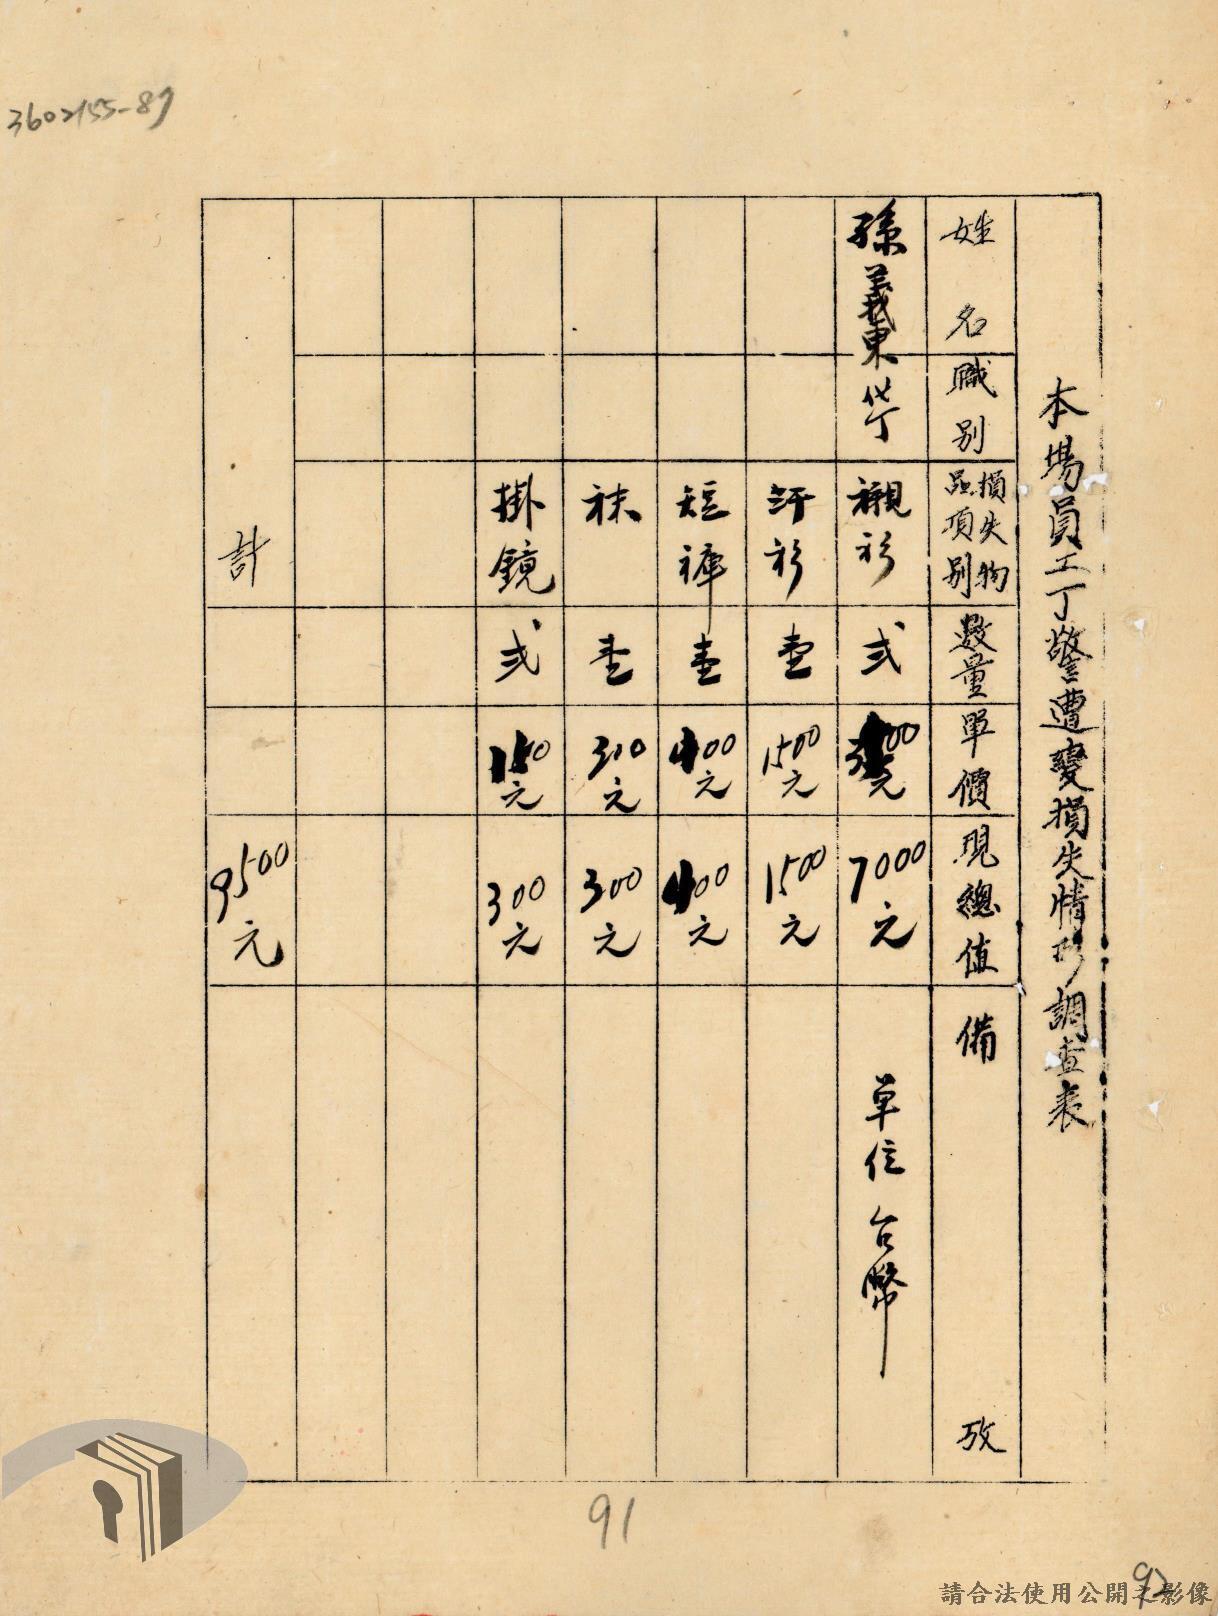 3602155-89
本場員工丁警遭變損失情形調查表
姓名 職別 損失物品項別 數量 單價 現總值 備攷
孫義東 襯衫 弍 元 7000元 單位台幣
汗衫 壹 1500元 1500元
短褲 壹 400元 400元
袜 壹 300元 300元
掛鏡 弍 150元 300元
計 9500元
91
92
請合法使用公開之影像